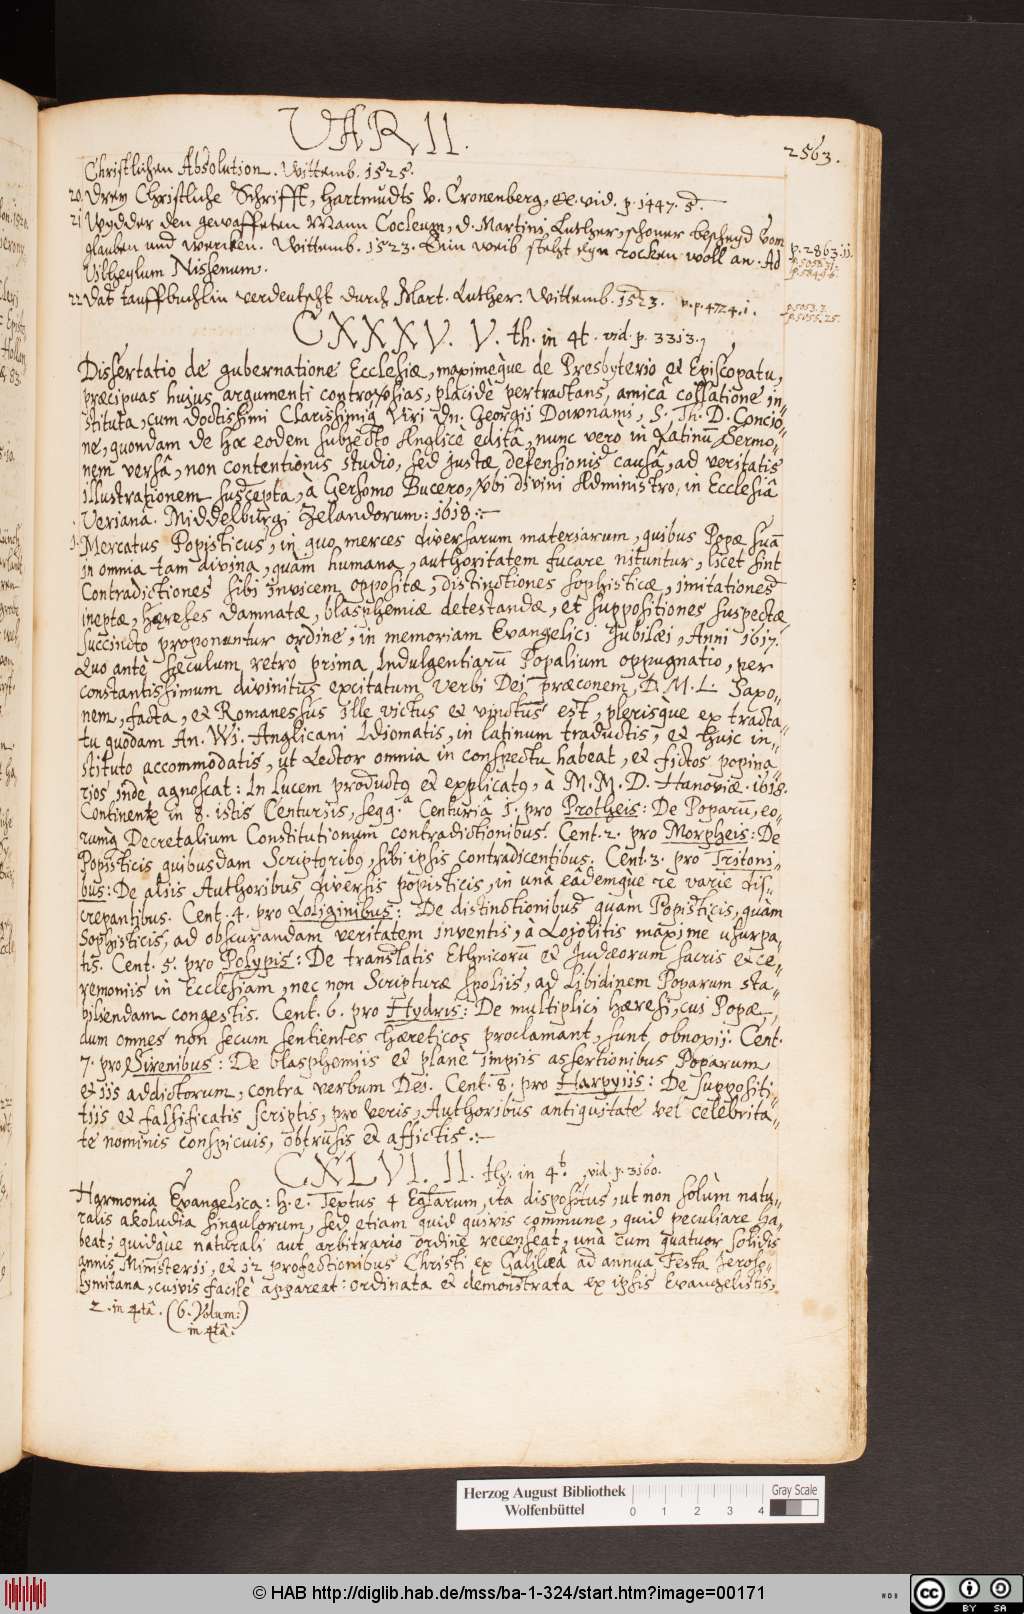 VARII.
2563.
Christlichen Absolution. Wittemb. 1525.
20. Drey Christliche Schrifft, Hartmudts v. Cronenberg, &c. vid. p. 1447. 5.
21 Wydder den gewaffeten Mann Cocleum, D. Martini Luther, schoner bescheyd vom
glauben und wercken. Wittemb. 1523. Ein weib steht eyn rocken woll an. Ad
Vilhelum Nissenum.
p. 2863.11.
22 Dat tauffbuchlin verdeutscht durch Mart. Luther. Wittemb. 1523. v. p. 4724. 1.
p. 5053. 7.
p. 5055. 25.
CXXXV. V. th. in 4t. vid. p. 3313.
Dissertatio de gubernatione Ecclesiæ, maximèque de Presbyterio et Episcopatu,
præcipuas huius argumenti controversias, placidè pertractans, amicâ collatione in-
stituta, cum doctissimi Clarissimiq Viri Dn. Georgii Downami, S. Th. D. Concio-
ne, quondam de hoc eodem subjecto Anglicè editâ, nunc verò in Latinū Sermo-
nem versâ, non contentionis studio, sed justæ defensionis causâ, ad veritatis
illustrationem suscepta, à Gersomo Bucero, Verbi divini Administro, in Ecclesiâ
Veriana. Middelburgi Zelandorum: 1618.
1. Mercatus Papisticus, in quo merces diversarum materiarum, quibus Papæ suā
in omnia tam divina, quàm humana, authoritatem fucare nituntur, licet sint
Contradictiones sibi invicem oppositæ, distinctiones sophisticæ, imitationes
ineptæ, hæreses damnatæ, blasphemiæ detestandæ, et suppositiones suspectæ,
succincto proponuntur ordine, in memoriam Evangelici Jubilæi, Anni 1617.
Quo antè seculum retrò prima Indulgentiarū Papalium oppugnatio, per
constantissimum divinitus excitatum verbi Dei præconem, D. M. L. Sapo-
nem, facta, et Romanessus ille victus et vinctus est, plerisque ex tracta-
tu quodam An. Wi. Anglicani Idiomatis, in latinum traductis, et huic in-
stituto accommodatis, ut Lector omnia in conspectu habeat, et fictos popina-
rios indè agnoscat: In Lucem productq et explicatq, à M. M. D. Hanoviæ. 1618.
Continente in 8. istis Centuriis, seqq. Centuriâ 1. pro Protheis: De Paparū, eo-
rumq Decretalium Constitutionum contradictionibus. Cent. 2. pro Morpheis: De
Papisticis quibusdam Scriptoribq, sibi ipsis contradicentibus. Cent. 3. pro Tritoni-
bus: De aliis Authoribus diversis papisticis, in unâ eâdemque re varie dis-
crepantibus. Cent. 4. pro Loliginibus: De distinctionibus quàm Papisticis, quàm
Sophisticis, ad obscurandam veritatem inventis, à Lojolitis maxime usurpa-
tis. Cent. 5. pro Polypis: De translatis Ethnicorū et Judæorum sacris et ce-
remoniis in Ecclesiam, nec non Scripturæ spoliis, ad libidinem Paparum sta-
biliendam congestis. Cent. 6. pro Hydris: De multiplici hæresi, cui Papæ,
dum omnes non secum sentientes hæreticos proclamant, sunt obnoxii. Cent.
7. pro Sirenibus: De blasphemiis et planè impiis assertionibus Paparum
et iis addictorum, contra verbum Dei. Cent. 8. pro Harpyiis: De supposititi-
tiis et falsificatis scriptis, pro veris, Authoribus antiquitate vel celebrita-
te nominis conspicuis, obtrusis et affictis.
CXLVI. II. th. in 4to. vid. p. 3160.
Harmonia Evangelica: h. e. Textus 4 Egtarum, ita dispositus, ut non solùm natu-
ralis akoludia singulorum, sed etiam quid quivis commune, quid peculiare ha-
beat; quidque naturali aut arbitrario ordine recenseat, una cum quatuor solidis
annis Ministerii, et 12 profectionibus Christi ex Galilæâ ad annua Festa Jeroso-
lymitana, cuivis facilè appareat: ordinata et demonstrata ex ipsis Evangelistis,
2. in 4tâ. (6. Volum:)
in 4tâ.
Herzog August Bibliothek
Wolfenbüttel
0 1 2 3 4
Gray Scale
© HAB http://diglib.hab.de/mss/ba-1-324/start.htm?image=00171
cc BY SA